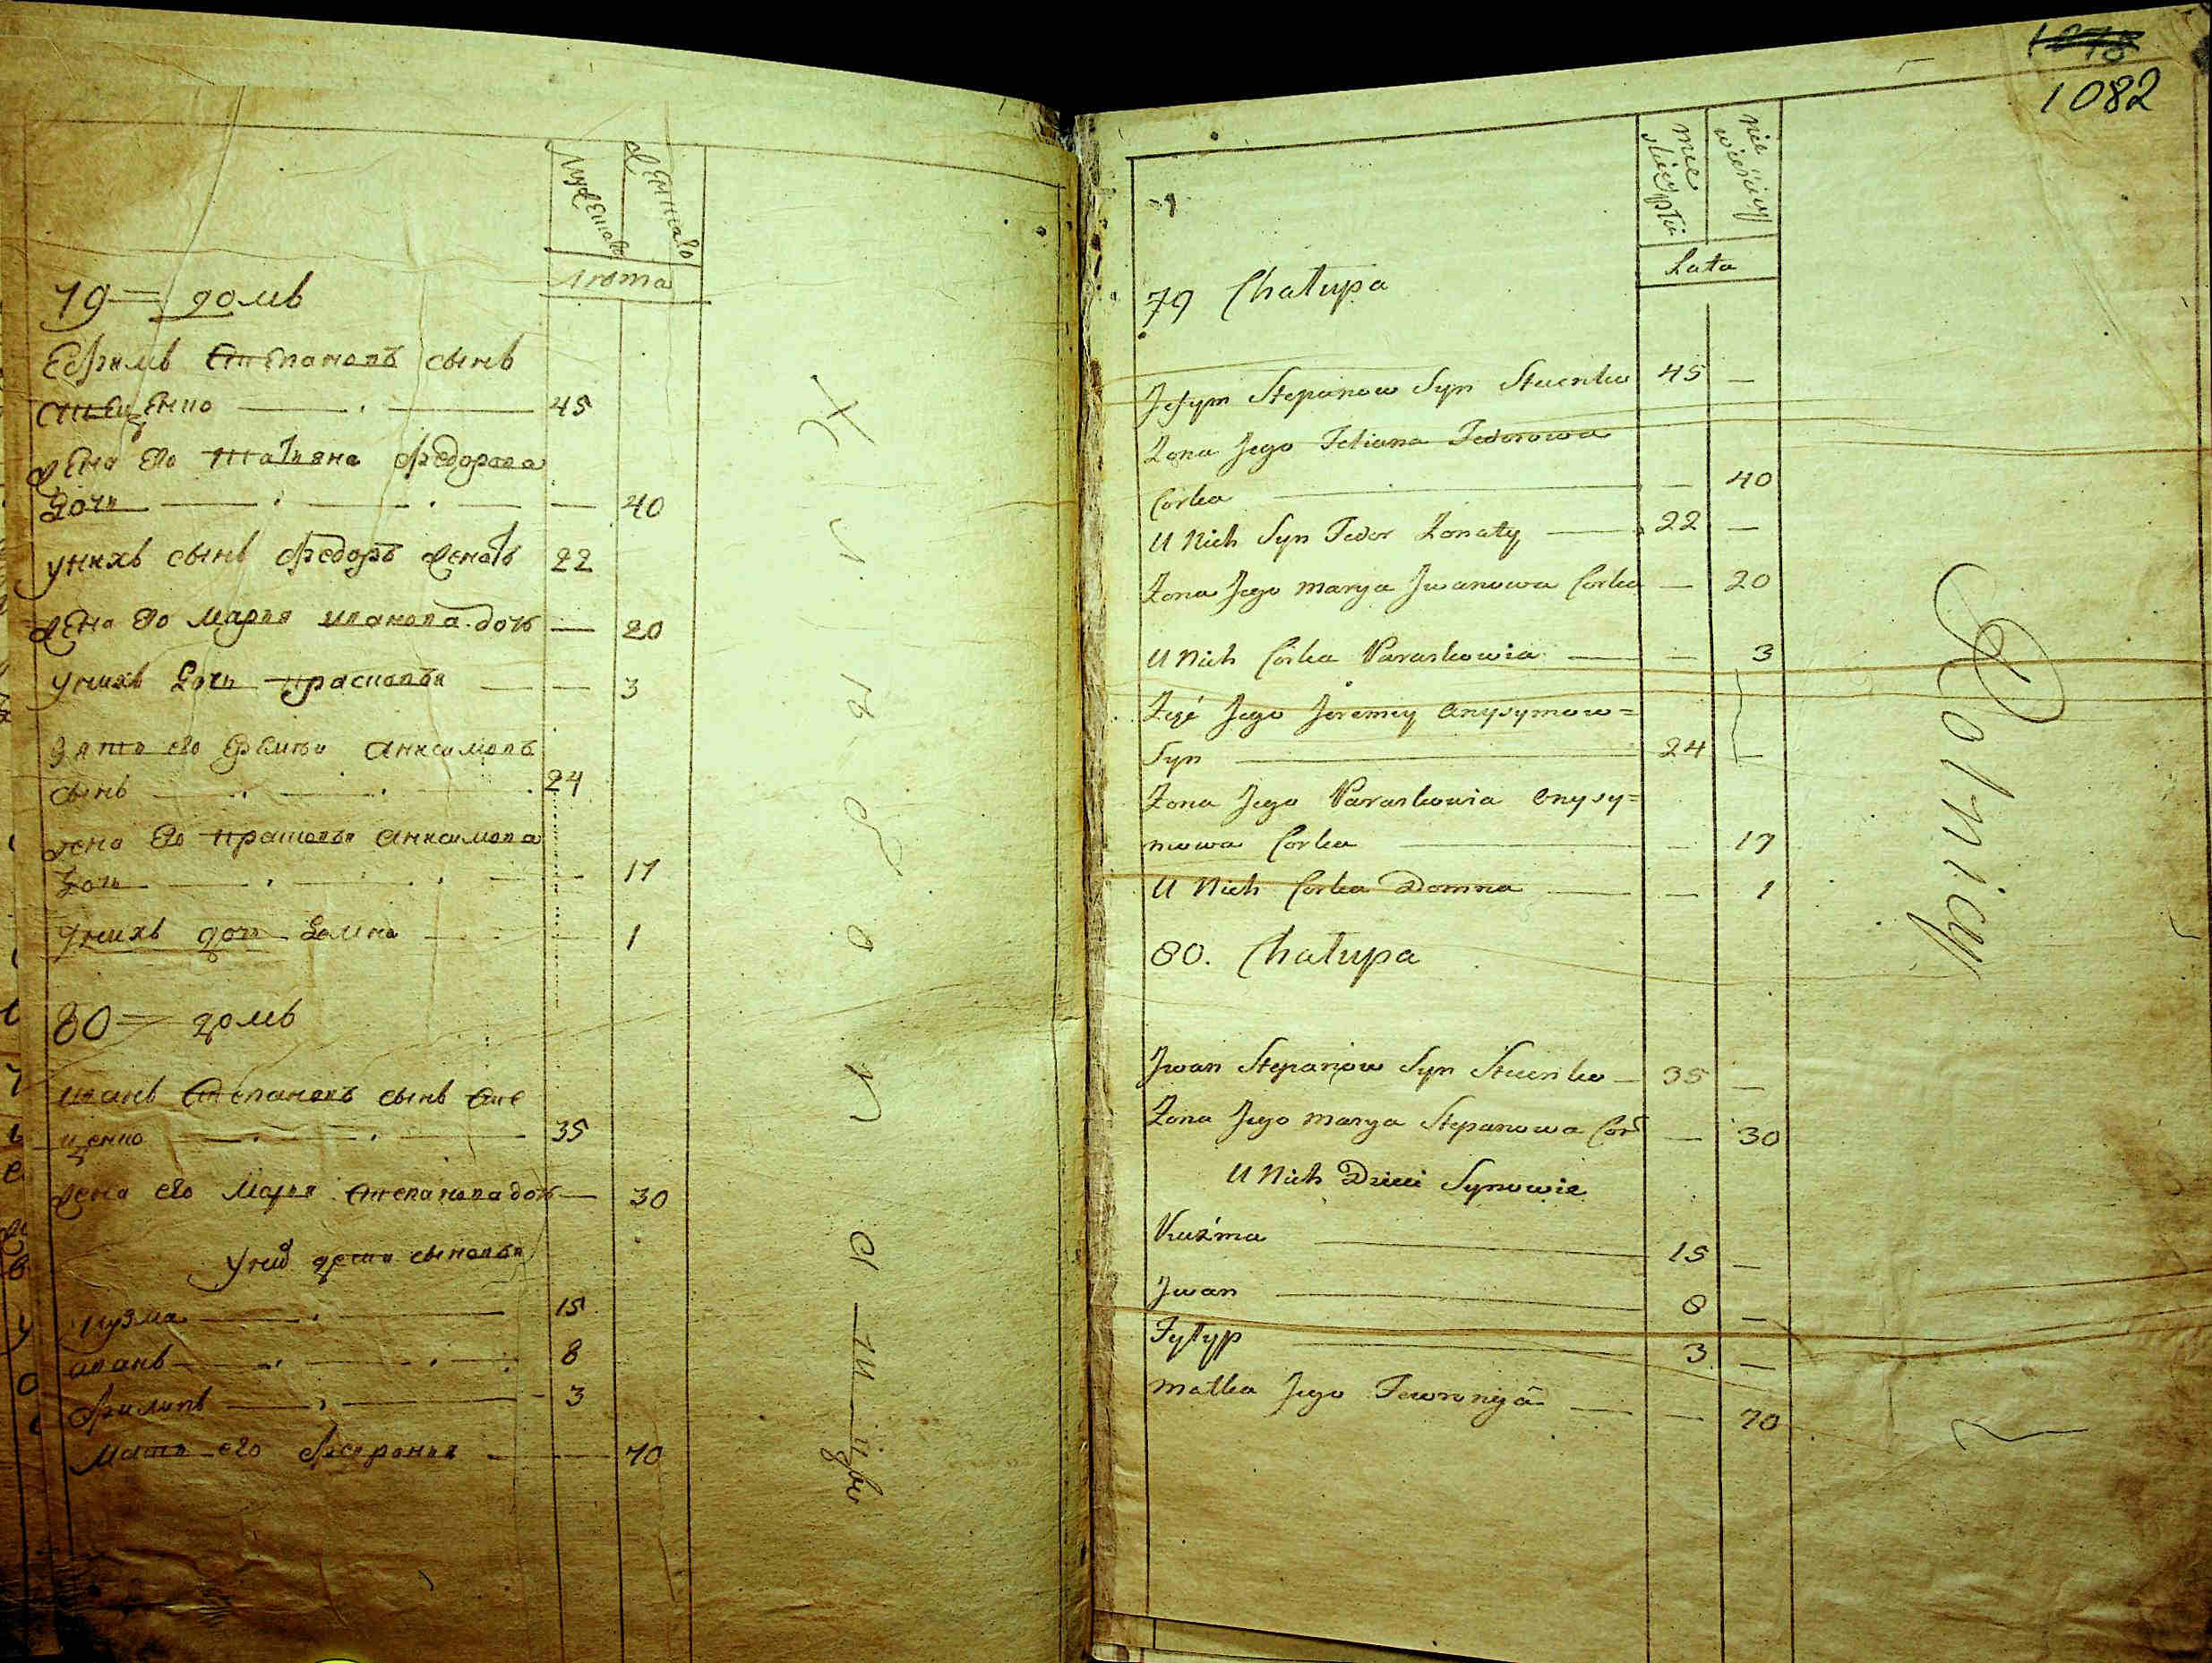 Мужеска
женска
Лѣта
79 = домъ
Ефимъ Степановъ сынъ
Стеценко 45
Жена его Татьяна Федорова
дочь 40
У нихъ сынъ Федоръ женатъ 22
Жена его Марья Иванова дочь 20
У нихъ дочь Прасковья 3
Зять его Еремѣй Анисимовъ
сынъ 24
Жена его Прасковья Анисимова
дочь 17
У нихъ дочь Домна 1
80 = домъ
Иванъ Степановъ сынъ Сте
ценко 35
Жена его Марья Степанова дочь 30
У них дети сыновья
Кузма 15
Иванъ 8
Филипъ 3
Мать его 70
1082
męe
skiey płci
nie
wieściey
Lata
79 Chałupa
Jefym Stepanow Syn Stecenko 45
Żona Jego Tetiana Fedorowa
Corka 40
U Nich Syn Fedor Żonaty 22
Żona Jego Marya Jwanowa Corka 20
U Nich Córka Paraskowia 3
Zięć Jego Jeremiy Anysymow=
Syn 24
Żona Jego Paraskowia Onysy=
mowa Corka 17
U Nich Corka Domna 1
80. Chałupa
Jwan Stepanow Syn Stecenko 35
Żona Jego Marya Stepanowa Cor 30
U Nich Dzieci Synowie
Kuźma 15
Jwan 8
Fyłyp 3
Matka Jego Fewronija 70
Rolnicy